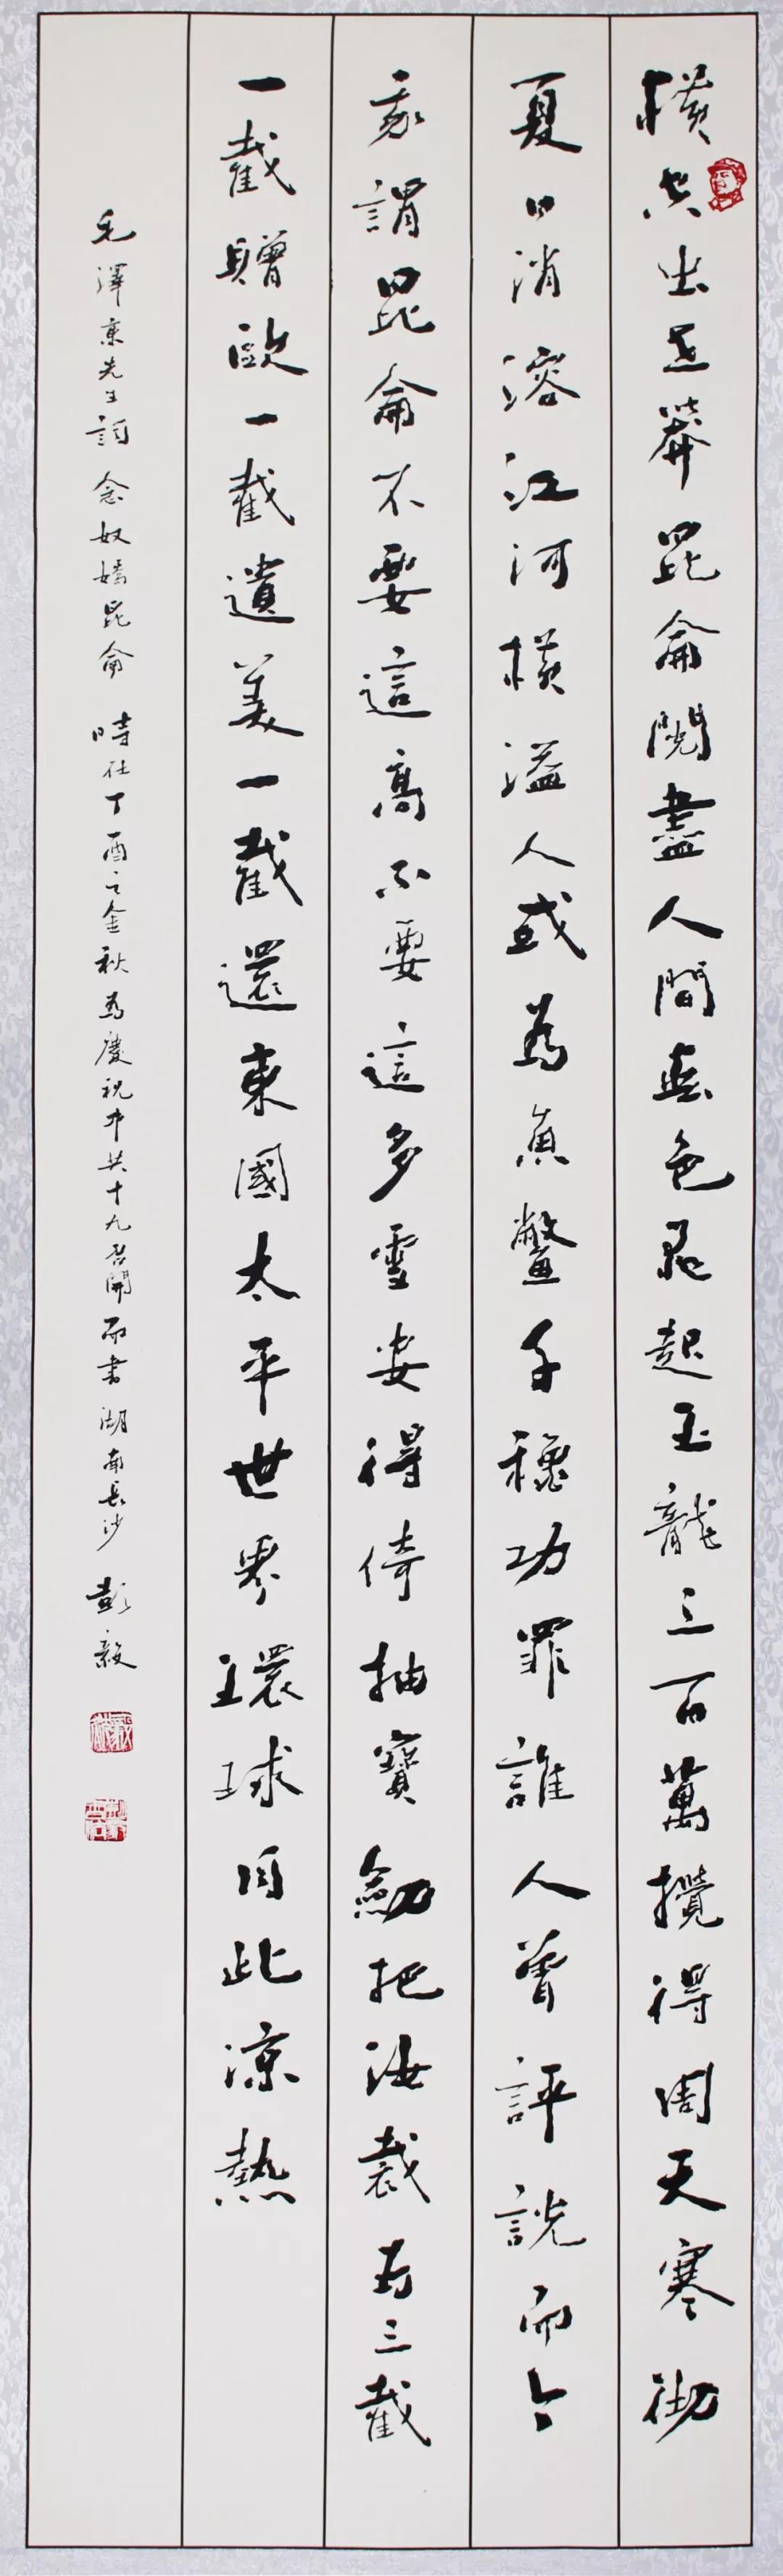 橫空出世莽昆侖閱盡人間春色飛起玉龍三百萬攪得周天寒徹
夏日消溶江河橫溢人或為魚鱉千穐功罪誰人曾評說而今
我謂昆侖不要這高不要這多雪安得倚抽寶劍把汝裁為三截
一截贈歐一截遺美一截還東國太平世界環球同此涼熱
毛澤東先生詞念奴嬌昆侖 時在丁酉之金秋為慶祝中共十九召開而書湖南長沙 彭毅